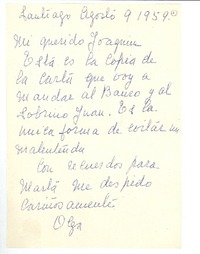 Santiago Agosto 9 1959
Mi querido Joaquin
Está es la copia de
la carta que voy a
mandar al Banco y al
Sobrino Juan. Es la
unica forma de evitar un
malentendido
Con recuerdos para
Marta me despido
Cariñosamente
Olga